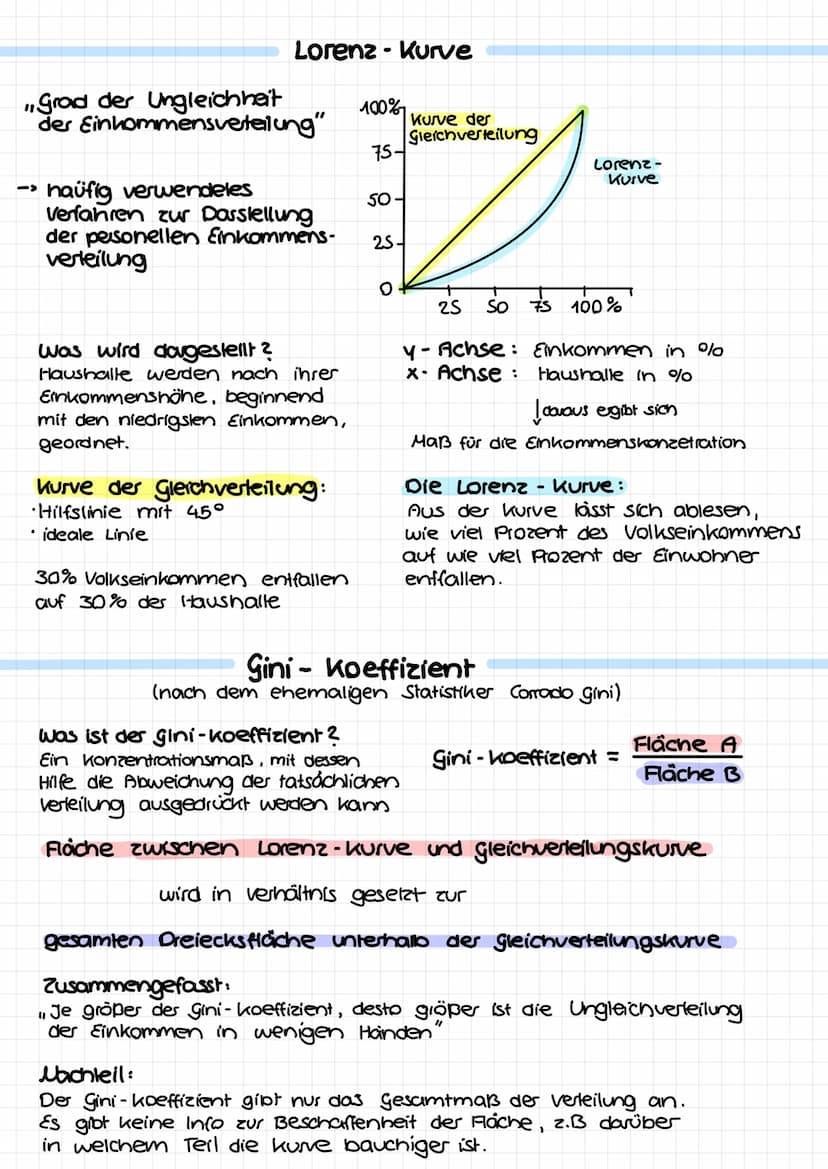 Lorenz - Kurve
„Grad der Ungleichheit
der Einkommensverteilung"
100%
75
50
25
0
25 50 75 100%
Kurve der
Gleichverteilung
Lorenz-
Kurve
-> haüfig verwendetes
Verfahren zur Darstellung
der personellen Einkommens-
verteilung
Was wird dargestellt?
Haushalte werden nach ihrer
Einkommenshöhe, beginnend
mit den niedrigsten Einkommen,
geordnet.
y - Achse : Einkommen in %
x - Achse : Haushalte in %
↓ daraus ergibt sich
Maß für die Einkommenskonzetration
Kurve der Gleichverteilung:
· Hilfslinie mit 45°
· ideale Linie
30% Volkseinkommen entfallen
auf 30% der Haushalte
Die Lorenz - Kurve:
Aus der Kurve lässt sich ablesen,
wie viel Prozent des Volkseinkommens
auf wie viel Prozent der Einwohner
entfallen.
Gini - Koeffizient
(nach dem ehemaligen Statistiker Corrado Gini)
Was ist der Gini-Koeffizient?
Ein Konzentrationsmaß, mit dessen
Hilfe die Abweichung der tatsächlichen
Verteilung ausgedrückt werden kann
Gini - Koeffizient =
Fläche A
Fläche B
Fläche zwischen Lorenz-Kurve und Gleichverteilungskurve
wird in Verhältnis gesetzt zur
gesamten Dreiecksfläche unterhalb der Gleichverteilungskurve
Zusammengefasst:
„Je größer der Gini-Koeffizient, desto größer ist die Ungleichverteilung
der Einkommen in wenigen Händen"
Nachteil:
Der Gini-Koeffizient gibt nur das Gesamtmaß der Verteilung an.
Es gibt keine Info zur Beschaffenheit der Fläche, z.B darüber
in welchem Teil die Kurve bauchiger ist.